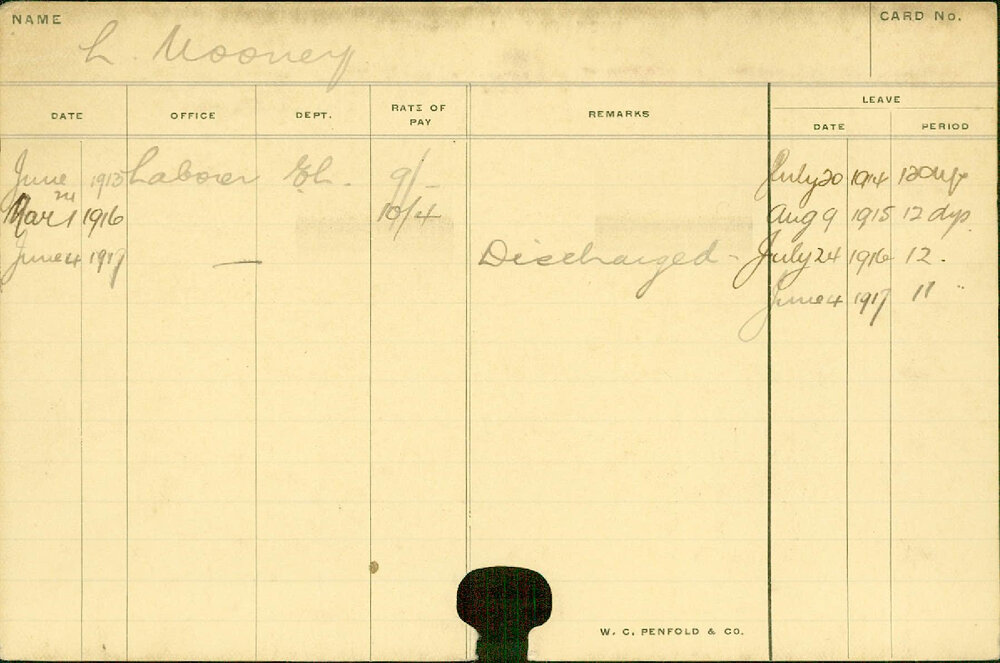 NAME L. Mooney CARD No.
DATE OFFICE DEPT. RATE OF PAY REMARKS LEAVE
DATE PERIOD
June 1913 Laborer 9/- July 20 1914 12 days
Mar 1 1916 10/4 Aug 9 1915 12 dys
June 4 1917 — Discharged - July 24 1916 12 .
June 4 1917 11 "
W. C. PENFOLD & CO.